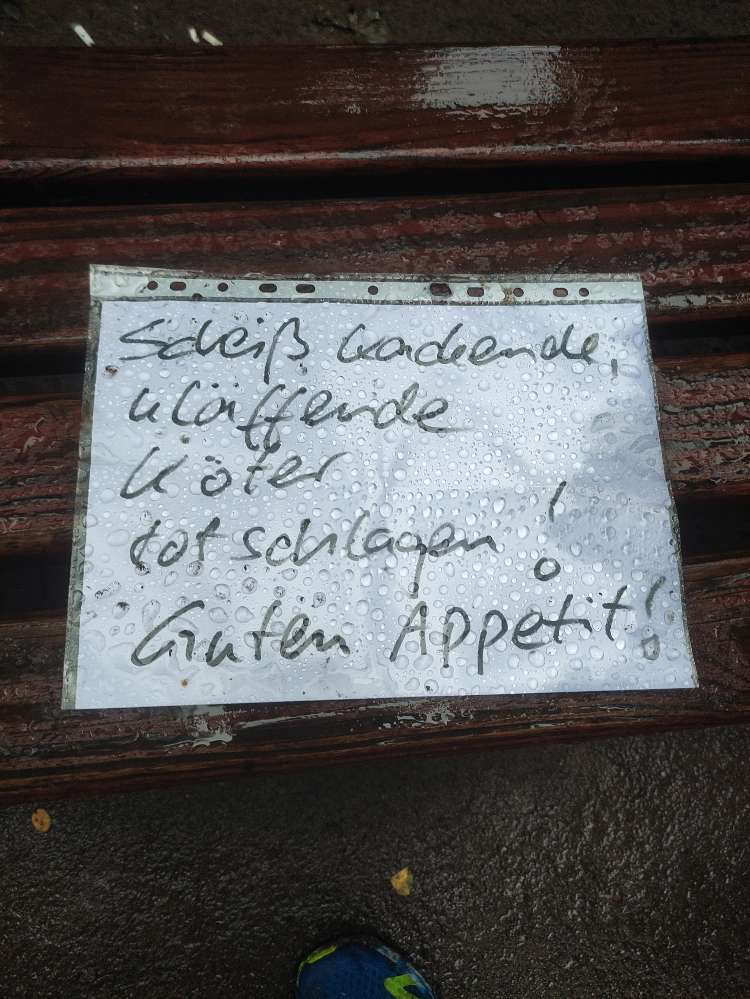 Scheiß kackende,
kläffende
Köter
totschlagen!
Guten Appetit!